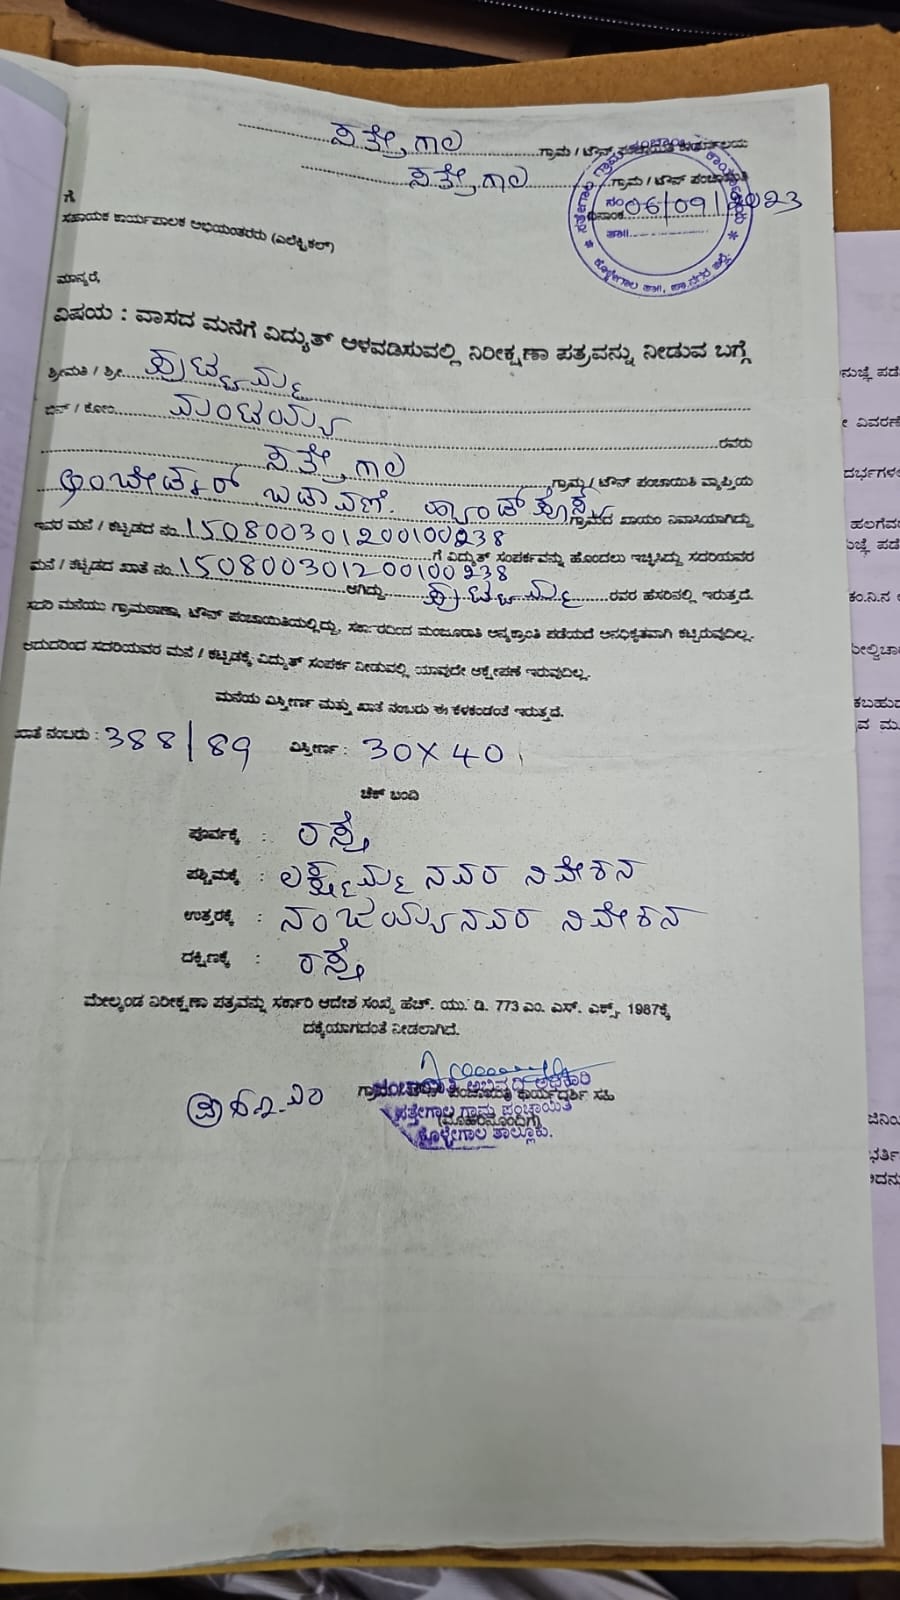 ಸತ್ತೇಗಾಲ ಗ್ರಾಮ / ಟೌನ್ ಪಂಚಾಯಿತಿ ಕಾರ್ಯಾಲಯ
ಸತ್ತೇಗಾಲ ಗ್ರಾಮ / ಟೌನ್ ಪಂಚಾಯಿತಿ
ಸತ್ತೇಗಾಲ ಗ್ರಾಮ ಪಂಚಾಯಿತಿ ಕಾರ್ಯಾಲಯ
ನಂ
ದಿನಾಂಕ 06/09/2023
ಗೆ
ಸಹಾಯಕ ಕಾರ್ಯಪಾಲಕ ಅಭಿಯಂತರರು (ಎಲೆಕ್ಟ್ರಿಕಲ್)
ಮಾನ್ಯರೆ,
ವಿಷಯ : ವಾಸದ ಮನೆಗೆ ವಿದ್ಯುತ್ ಅಳವಡಿಸುವಲ್ಲಿ ನಿರೀಕ್ಷಣಾ ಪತ್ರವನ್ನು ನೀಡುವ ಬಗ್ಗೆ
ಶ್ರೀಮತಿ / ಶ್ರೀ ಪುಟ್ಟಮ್ಮ
ಬಿನ್ / ಕೋಂ ಮಂಟಯ್ಯ ರವರು
ಸತ್ತೇಗಾಲ ಗ್ರಾಮ / ಟೌನ್ ಪಂಚಾಯಿತಿ ವ್ಯಾಪ್ತಿಯ
ಅಂಬೇಡ್ಕರ್ ಬಡಾವಣೆ. ಹ್ಯಾಂಡ್ ಪೋಸ್ಟ್ ಗ್ರಾಮದ ಖಾಯಂ ನಿವಾಸಿಯಾಗಿದ್ದು
ಇವರ ಮನೆ / ಕಟ್ಟಡದ ನಂ. 150800301200100238 ಗೆ ವಿದ್ಯುತ್ ಸಂಪರ್ಕವನ್ನು ಹೊಂದಲು ಇಚ್ಛಿಸಿದ್ದು ಸದರಿಯವರ
ಮನೆ / ಕಟ್ಟಡದ ಖಾತೆ ನಂ. 150800301200100238 ಆಗಿದ್ದು ಪುಟ್ಟಮ್ಮ ರವರ ಹೆಸರಿನಲ್ಲಿ ಇರುತ್ತದೆ.
ಸದರಿ ಮನೆಯು ಗ್ರಾಮಠಾಣಾ, ಟೌನ್ ಪಂಚಾಯಿತಿಯಲ್ಲಿದ್ದು, ಸರ್ಕಾರದಿಂದ ಮಂಜೂರಾತಿ ಅನ್ಯಕ್ರಾಂತಿ ಪಡೆಯದೆ ಅನಧಿಕೃತವಾಗಿ ಕಟ್ಟಿರುವುದಿಲ್ಲ.
ಆದುದರಿಂದ ಸದರಿಯವರ ಮನೆ / ಕಟ್ಟಡಕ್ಕೆ ವಿದ್ಯುತ್ ಸಂಪರ್ಕ ನೀಡುವಲ್ಲಿ ಯಾವುದೇ ಆಕ್ಷೇಪಣೆ ಇರುವುದಿಲ್ಲ.
ಮನೆಯ ವಿಸ್ತೀರ್ಣ ಮತ್ತು ಖಾತೆ ನಂಬರು ಈ ಕೆಳಕಂಡಂತೆ ಇರುತ್ತದೆ.
ಖಾತೆ ನಂಬರು : 388/89 ವಿಸ್ತೀರ್ಣ : 30X40
ಚೆಕ್ ಬಂದಿ
ಪೂರ್ವಕ್ಕೆ : ರಸ್ತೆ
ಪಶ್ಚಿಮಕ್ಕೆ : ಲಕ್ಷ್ಮಮ್ಮ ನವರ ನಿವೇಶನ
ಉತ್ತರಕ್ಕೆ : ನಂಜಯ್ಯನವರ ನಿವೇಶನ
ದಕ್ಷಿಣಕ್ಕೆ : ರಸ್ತೆ
ಮೇಲ್ಕಂಡ ನಿರೀಕ್ಷಣಾ ಪತ್ರವನ್ನು ಸರ್ಕಾರಿ ಆದೇಶ ಸಂಖ್ಯೆ ಹೆಚ್. ಯು. ಡಿ. 773 ಎಂ. ಎಸ್. ಎಕ್ಸ್. 1987ಕ್ಕೆ
ದಕ್ಕೆಯಾಗದಂತೆ ನೀಡಲಾಗಿದೆ.
ಗ್ರಾಮ / ಟೌನ್ ಪಂಚಾಯಿತಿ ಕಾರ್ಯದರ್ಶಿ ಸಹಿ
(ಮೊಹರಿನೊಂದಿಗೆ)
ಪಂಚಾಯಿತಿ ಅಭಿವೃದ್ಧಿ ಅಧಿಕಾರಿ
ಸತ್ತೇಗಾಲ ಗ್ರಾಮ ಪಂಚಾಯಿತಿ
ಕೊಳ್ಳೇಗಾಲ ತಾಲ್ಲೂಕು.